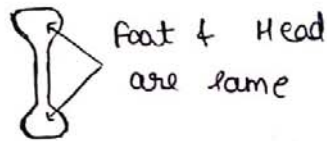 Foot & Head
are same